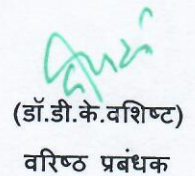 (डॉ.डी.के.वशिष्ट)
वरिष्ठ प्रबंधक